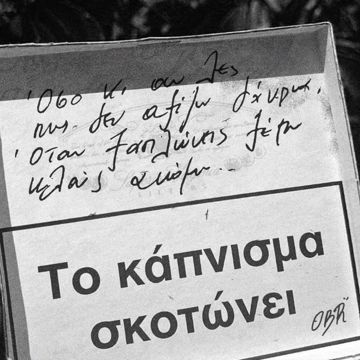 Όσο κι αν λες
πως δεν αξίζω δάκρυα,
Όταν ξαπλώνεις ξέρω
κελαίς ακόμα...
Το κάπνισμα
σκοτώνει
OBRÏ